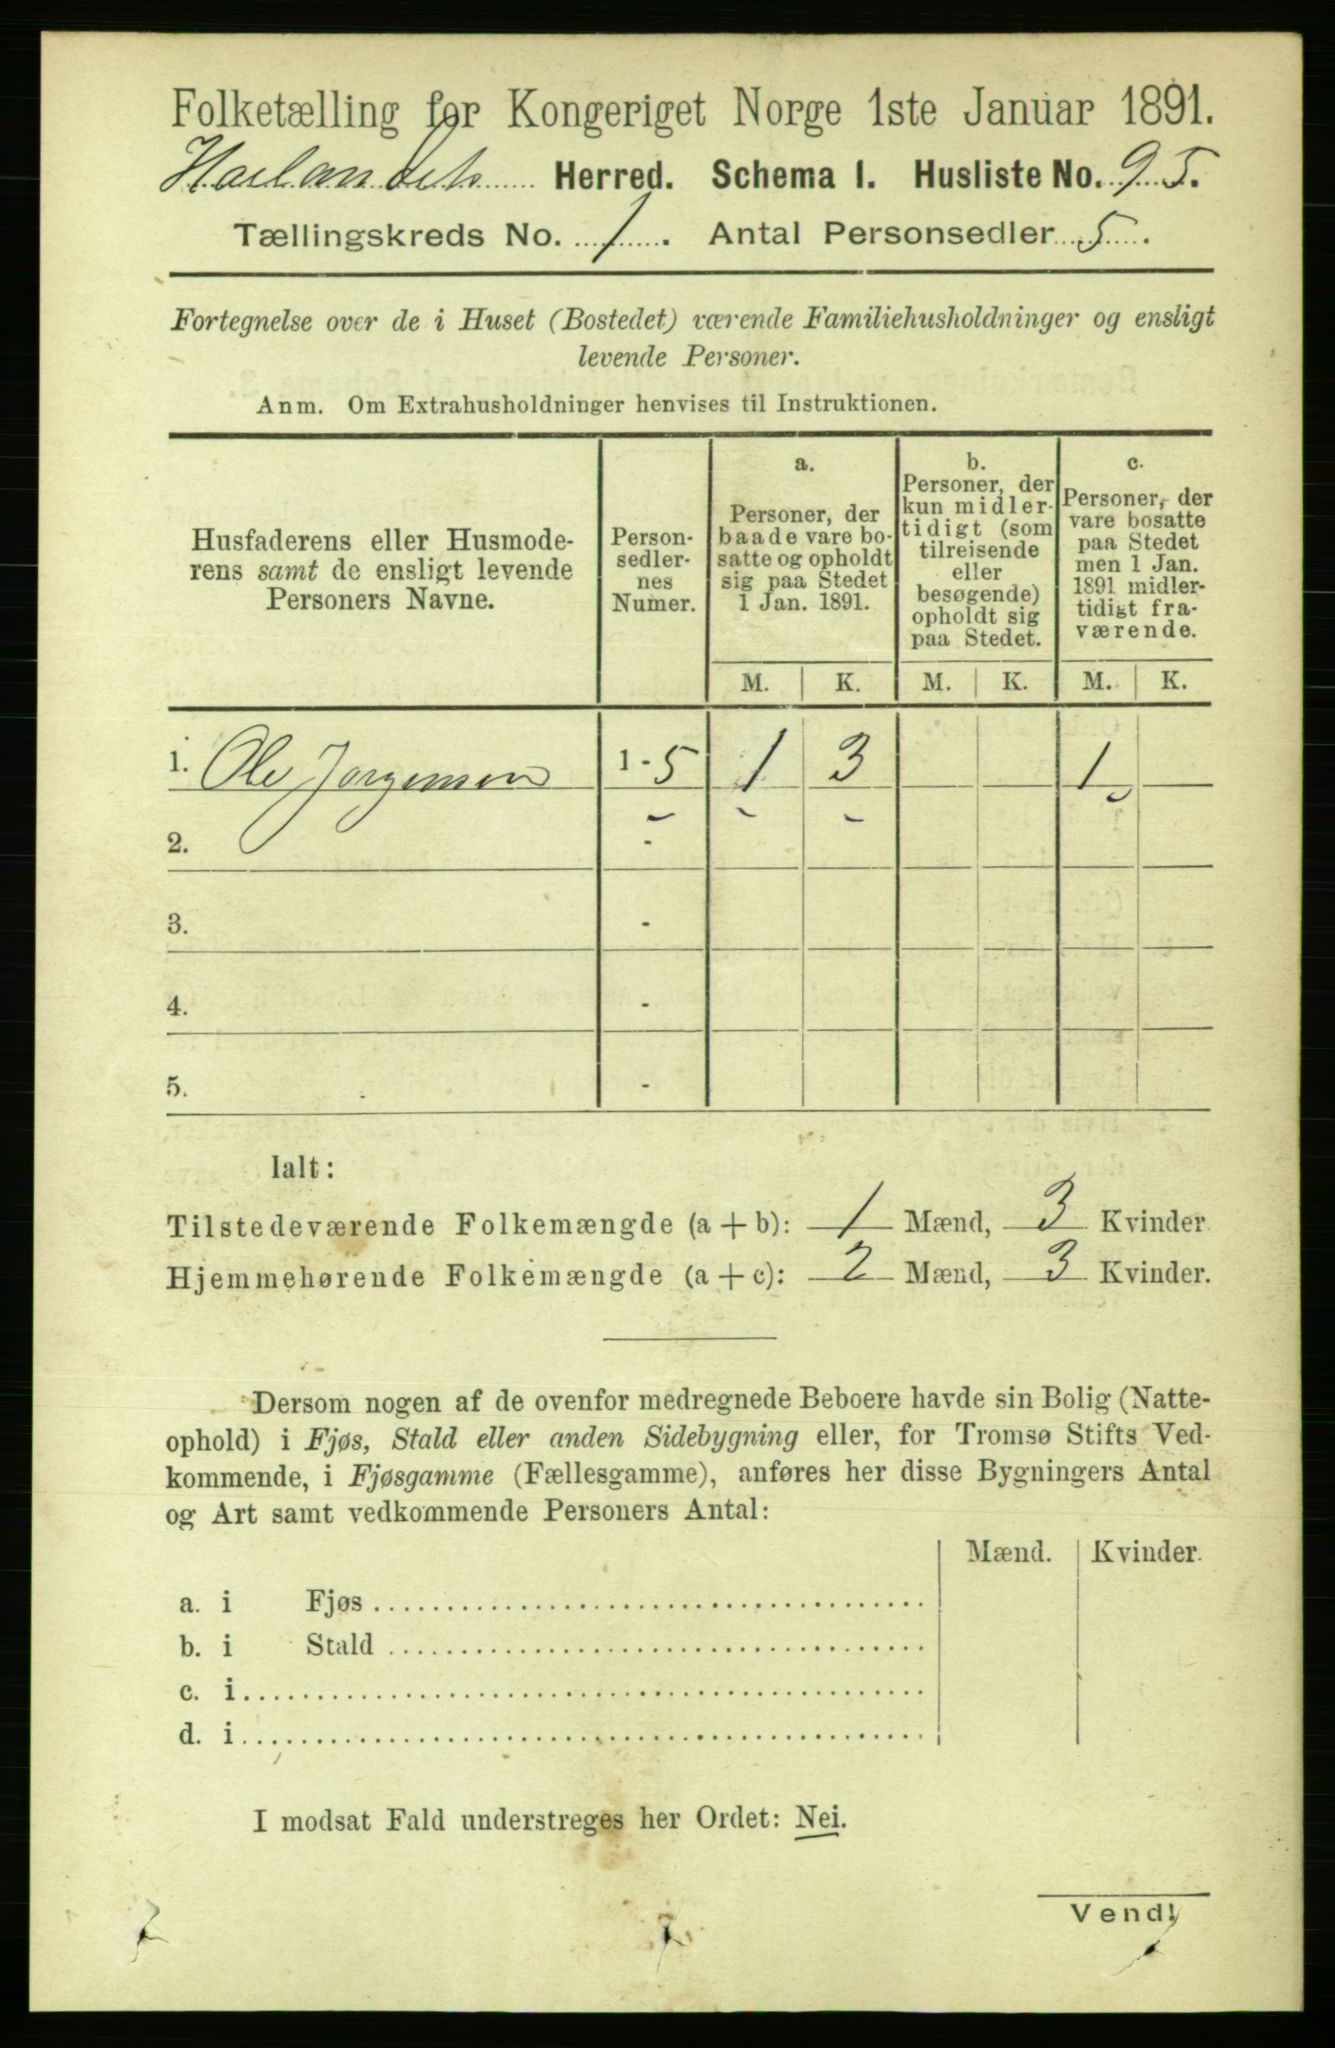 Folketælling for Kongeriget Norge 1ste Januar 1891.
Herred. Schema 1. Husliste No. 95.
Tællingskreds No. 1. Antal Personsedler 5.
Fortegnelse over de i Huset (Bostedet) værende Familiehusholdninger og ensligt
levende Personer.
Anm. Om Extrahusholdninger henvises til Instruktionen.
Husfaderens eller Husmode-
rens samt de ensligt levende
Personers Navne.
Person-
sedler-
nes
Numer.
a.
Personer, der
baade vare bo-
satte og opholdt
sig paa Stedet
1 Jan. 1891.
b.
Personer, der
kun midler-
tidigt (som
tilreisende
eller
besøgende)
opholdt sig
paa Stedet.
c.
Personer, der
vare bosatte
paa Stedet
men 1 Jan.
1891 midler-
tidigt fra-
værende.
M. K. M. K. M. K.
1. Ole Jørgensen 1-5 1 3 1
2. -
3. -
4. -
5. -
Ialt:
Tilstedeværende Folkemængde (a + b): 1 Mænd, 3 Kvinder
Hjemmehørende Folkemængde (a + c): 2 Mænd, 3 Kvinder.
Dersom nogen af de ovenfor medregnede Beboere havde sin Bolig (Natte-
ophold) i Fjøs, Stald eller anden Sidebygning eller, for Tromsø Stifts Ved-
kommende, i Fjøsgamme (Fællesgamme), anføres her disse Bygningers Antal
og Art samt vedkommende Personers Antal:
Mænd. Kvinder.
a. i Fjøs
b. i Stald
c. i
d. i
I modsat Fald understreges her Ordet: Nei.
Vend!